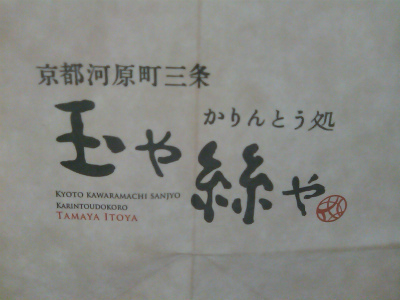 京都河原町三条
かりんとう処
玉や
絲や
KYOTO KAWARAMACHI SANJYO
KARINTOUDOKORO
TAMAYA ITOYA